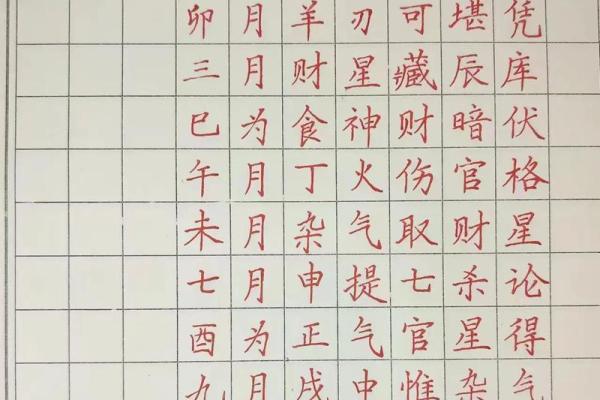 卯月羊刃可堪凭
三月财星藏辰库
巳为食神财暗伏
午月丁火伤官格
未月杂气取财星
七月申提七杀论
酉为正气官星得
九月戌中惟杂气